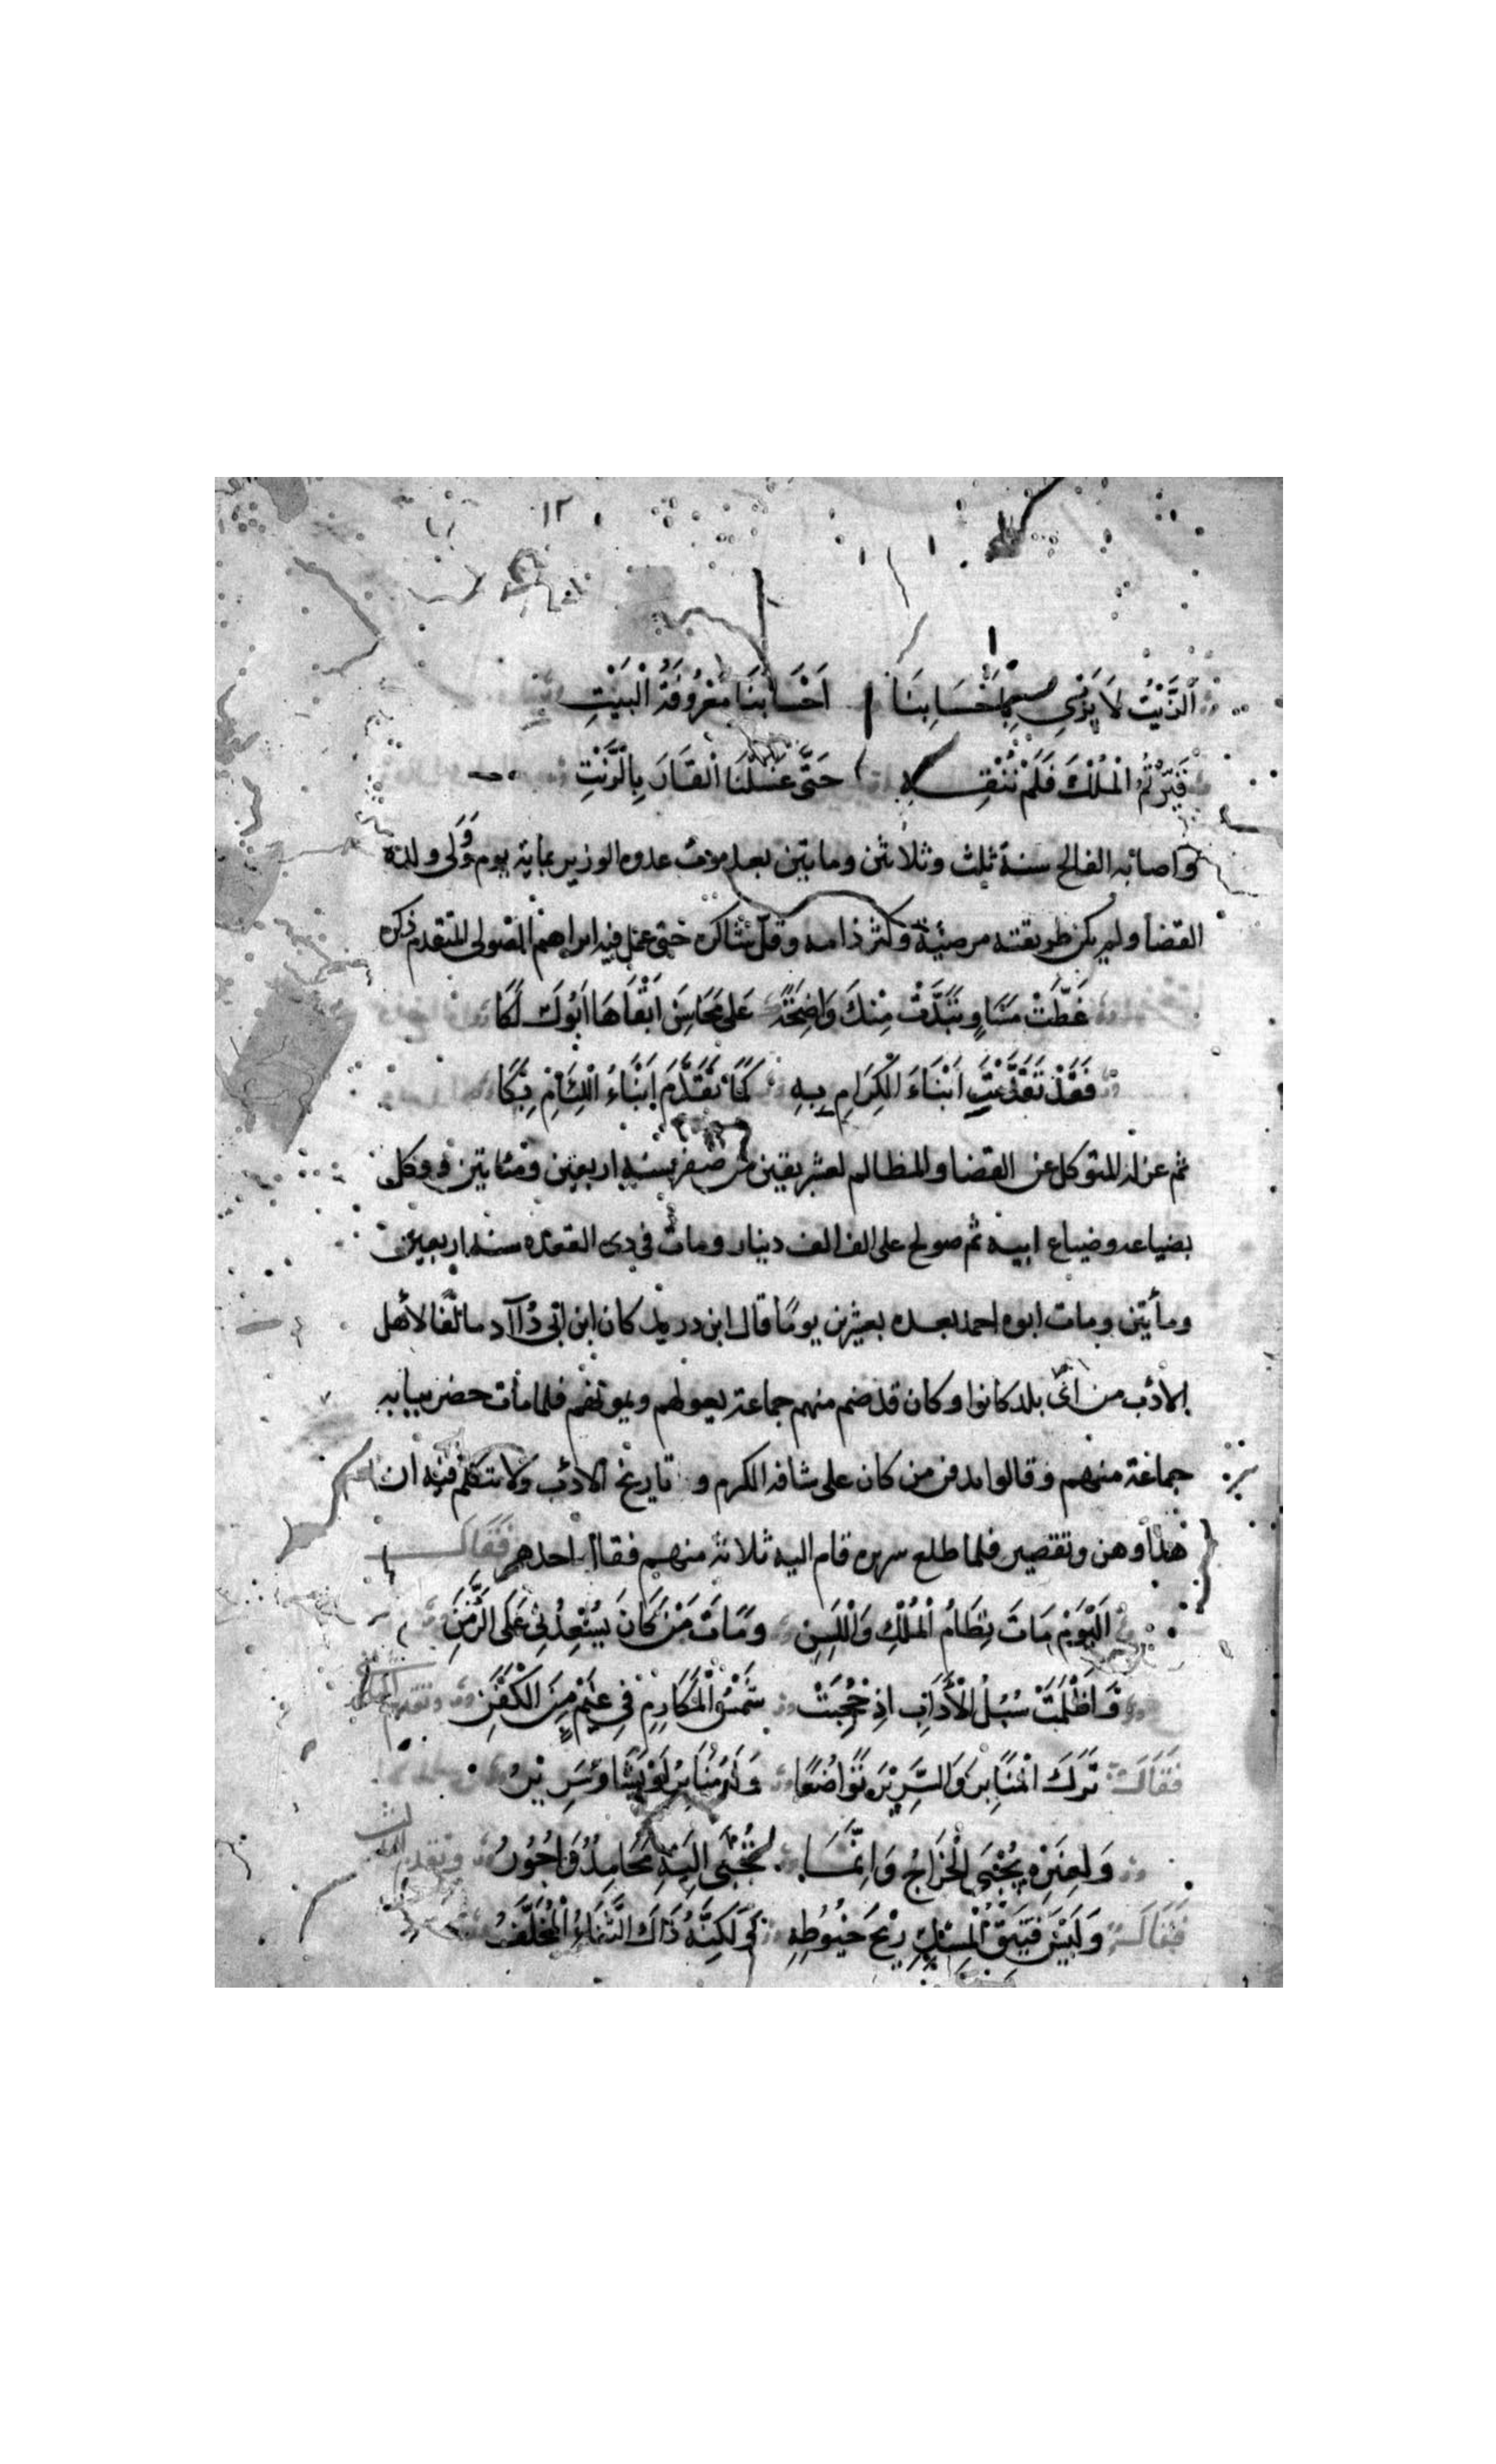 ١٢
اَلزَّيْتُ لَا يُزْرِي بِاَحْسَابِنَا اَحْسَابُنَا مَعْرُوفَةُ الْبَيْتِ
قَيَّرْتُمُ الْمُلْكَ فَلَمْ نُنْقِهِ حَتَّى غَسَلْنَا الْقَارَ بِالزَّيْتِ
واصابه الفالج سنة ثلث وثلاثين ومايتين بعد موت عدوه الوزير بماية يوم وَوُلى ولده
القضا ولم يكن طريقته مرضية وكثر ذامه وقلّ شاكره حتى عمل فيه ابراهيم الصولى المتقدم ذكره
غَطَّتْ مَسَاوٍ تَبَدَّتْ مِنْكَ وَاضِحَةً عَلى مَحَاسِنَ اَبْقَاهَا اَبُوكَ لَكَا
فَقَدْ تَقَدَّمْتَ اَبْنَاءَ الْكِرَامِ بِهِ كَمَا تَقَدَّمَ اَبْنَاءُ اللِّئَامِ بِكَا
ثم عزله المتوكل عن القضا والمظالم لعشر بقين من صفر سنة اربعين ومئايتين ووكل
بضياعه وضياع ابيه ثم صولح على الف الف دينار ومات فى ذى القعده سنة اربعين
ومأيتين ومات ابوه احمد بعده بعشرين يومًا قال ابن دريد كان ابن ابى دُآآد مالفًا لاهل
الادب من اى بلد كانوا وكان قد ضم منهم جماعة يعولهم ويمونهم فلما مات حضر ببابه
جماعة منهم وقالوا يدفن من كان على ساقه الكرم و تاريخ الادب ولا يتكلم فيه ان
هذا وهن وتقصير فلما طلع سريره قام اليه ثلاثة منهم فقال احدهم فَقَالَ
اَلْيَوْمَ مَاتَ نِظَامُ الْمُلْكِ وَاللَّسِنِ وَمَاتَ مَنْ كَانَ يُسْتَعْدَى عَلَى الزَّمَنِ
وَاَظْلَمَتْ سُبُلُ الْاَدَابِ اِذْ حُجِبَتْ شَمْسُ الْمَكَارِمِ فِى غَيْمٍ مِنَ الْكَفَنِ
فَقَالَ تَرَكَ الْمَنَابِرَ وَالسَّرِيْرَ تَوَاضُعًا وَلَهُ مَنَابِرُ لَوْ يَشَا وَسَرِيْرُ
وَلِغَيْرِهِ يُجْبَى الْخَرَاجُ وَاِنَّمَا تُجْبَى اِلَيْهِ مَحَامِدٌ وَاُجُورُ
فَقَالَ وَلَيْسَ فَتِيقُ الْمِسْكِ رِيْحَ حَنُوطِهِ وَلٰكِنَّهُ ذَاكَ الثَّنَاءُ الْمُخَلَّفُ